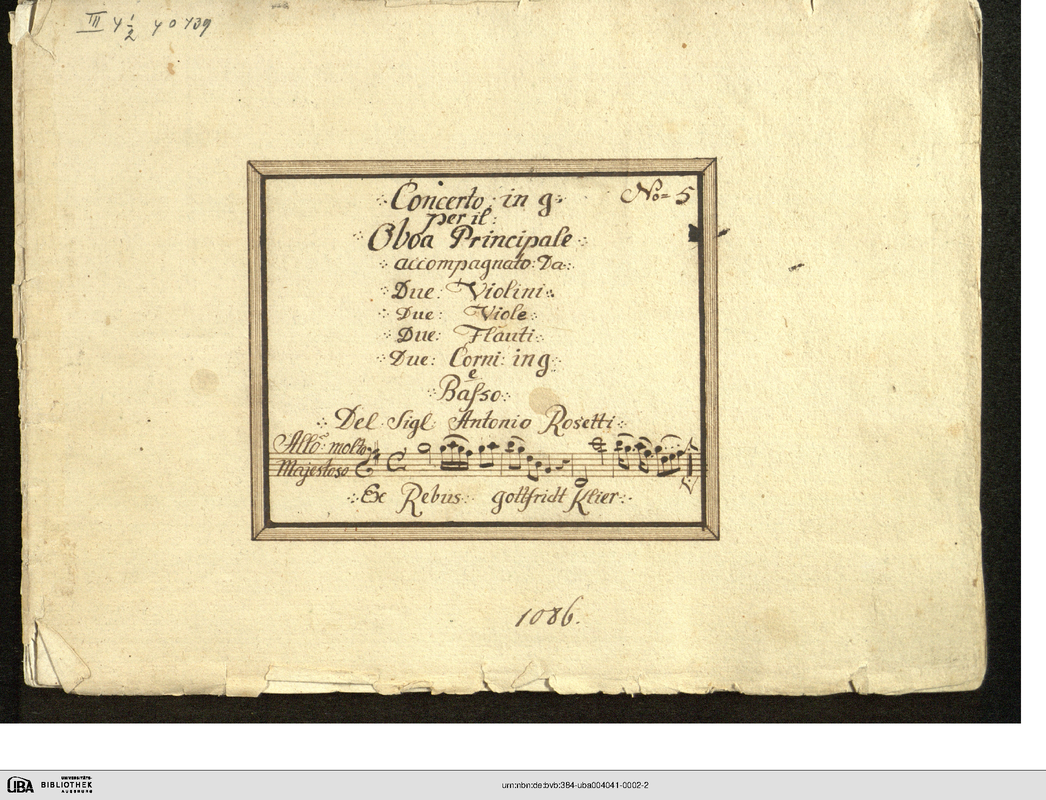 III 4 1/2 4 0 439
Concerto in g
No= 5
per il
Oboa Principale
accompagnato Da
Due Violini
Due Viole
Due Flauti
Due Corni in g
e
Baſso
Del Sigl Antonio Rosetti
Allo: molto
Majestoso
Ex Rebus gottfridt Klier
1086.
UBA UNIVERSITÄTS-
BIBLIOTHEK
AUGSBURG
urn:nbn:de:bvb:384-uba004041-0002-2